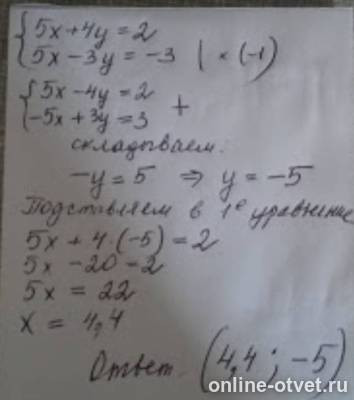 { 5x+4y=2
{ 5x-3y=-3 | × (-1)
{ 5x-4y=2
{ -5x+3y=3 +
складываем:
-y=5 ⇒ y=-5
Подставляем в 1е уравнение
5x+4·(-5)=2
5x-20-2
5x=22
x=4,4
Ответ. (4,4; -5)
online-otvet.ru